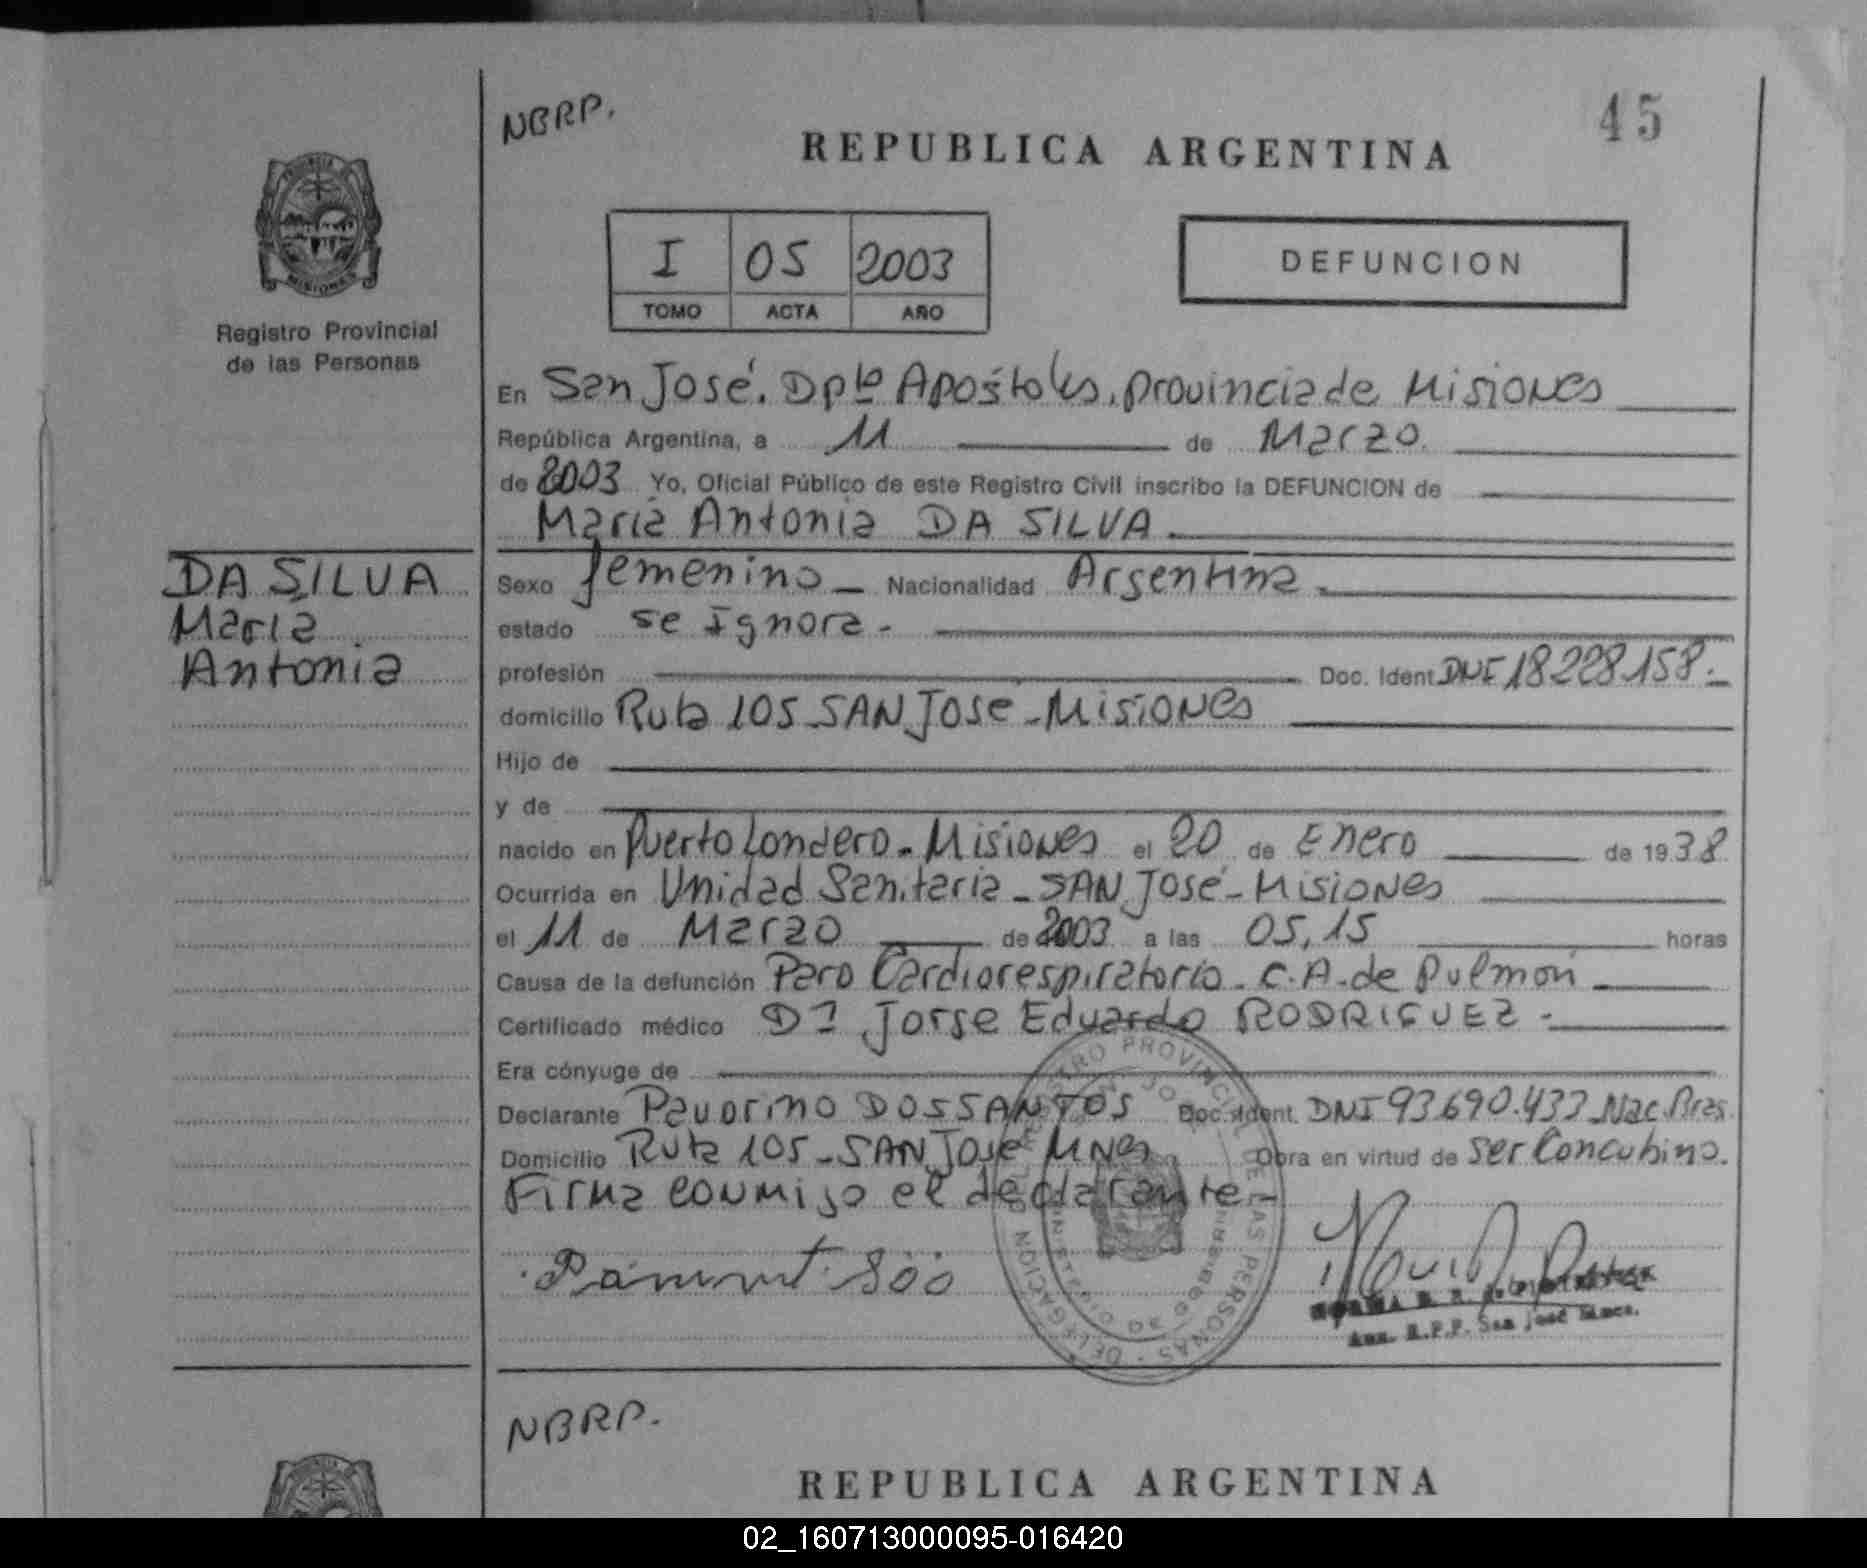 NBRP.
45
REPUBLICA ARGENTINA
I 05 2003
TOMO ACTA AÑO
DEFUNCION
Registro Provincial
de las Personas
En San José. Dpto Apóstoles. provincia de Misiones
República Argentina, a 11 de Marzo
de 2003 Yo, Oficial Público de este Registro Civil inscribo la DEFUNCION de
Maria Antonia DA SILVA
DA SILVA
Maria
Antonia
Sexo femenino Nacionalidad Argentina
estado se Ignora.
profesión Doc. Ident DNI 18228158.
domicilio Ruta 105 SAN José - Misiones
Hijo de
y de
nacido en Puerto Londero - Misiones el 20 de Enero de 1938
Ocurrida en Unidad Sanitaria - SAN José - Misiones
el 11 de Marzo de 2003 a las 05,15 horas
Causa de la defunción Paro Cardiorespiratorio - C.A. de Pulmón
Certificado médico Dr Jorge Eduardo RODRIGUEZ.
Era cónyuge de
Declarante Pavorino DOS SANTOS Doc. Ident. DNI 93.690.433 Nac. Bras.
Domicilio Ruta 105 - SAN José Mnes Obra en virtud de ser Concubino.
Firma conmigo el declarante.
REGISTRO PROVINCIAL DE LAS PERSONAS - DELEGACION
R.P.P. San José Mnes.
NBRP.
REPUBLICA ARGENTINA
02_160713000095-016420